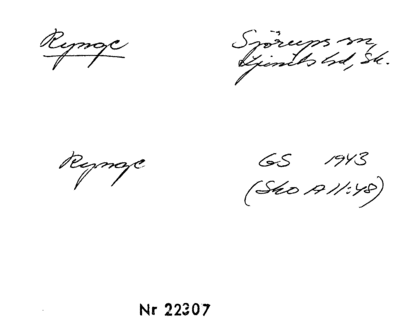 Rynge Sjörups sn,
Ljunits hd, Sk.
Rynge GS 1943
(Sko A11:48)
Nr 22307